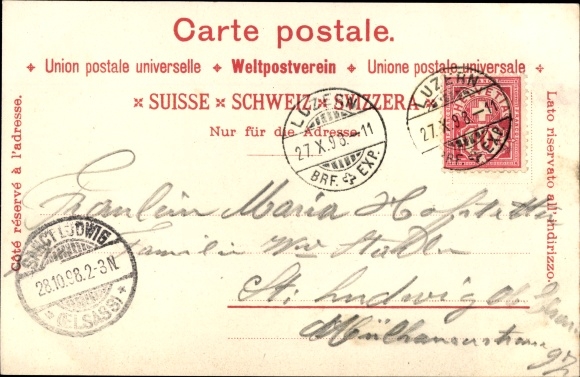 Carte postale.
✦ Union postale universelle ✦ Weltpostverein ✦ Unione postale universale ✦
✕ SUISSE ✕ SCHWEIZ ✕ SVIZZERA ✕
Nur für die Adresse.
Côté réservé à l'adresse.
Lato riservato all'indirizzo.
LUZERN
27.X.98. 11
BRF. ✠ EXP.
LUZERN
27.X.98. 11
EXP.
HELVETIA
Fräulein Maria Hofstetter
Familie Wwe
St. Ludwig
Mülhauserstrasse
97
SANCT LUDWIG
28.10.98.2-3N.
* (ELSASS) *